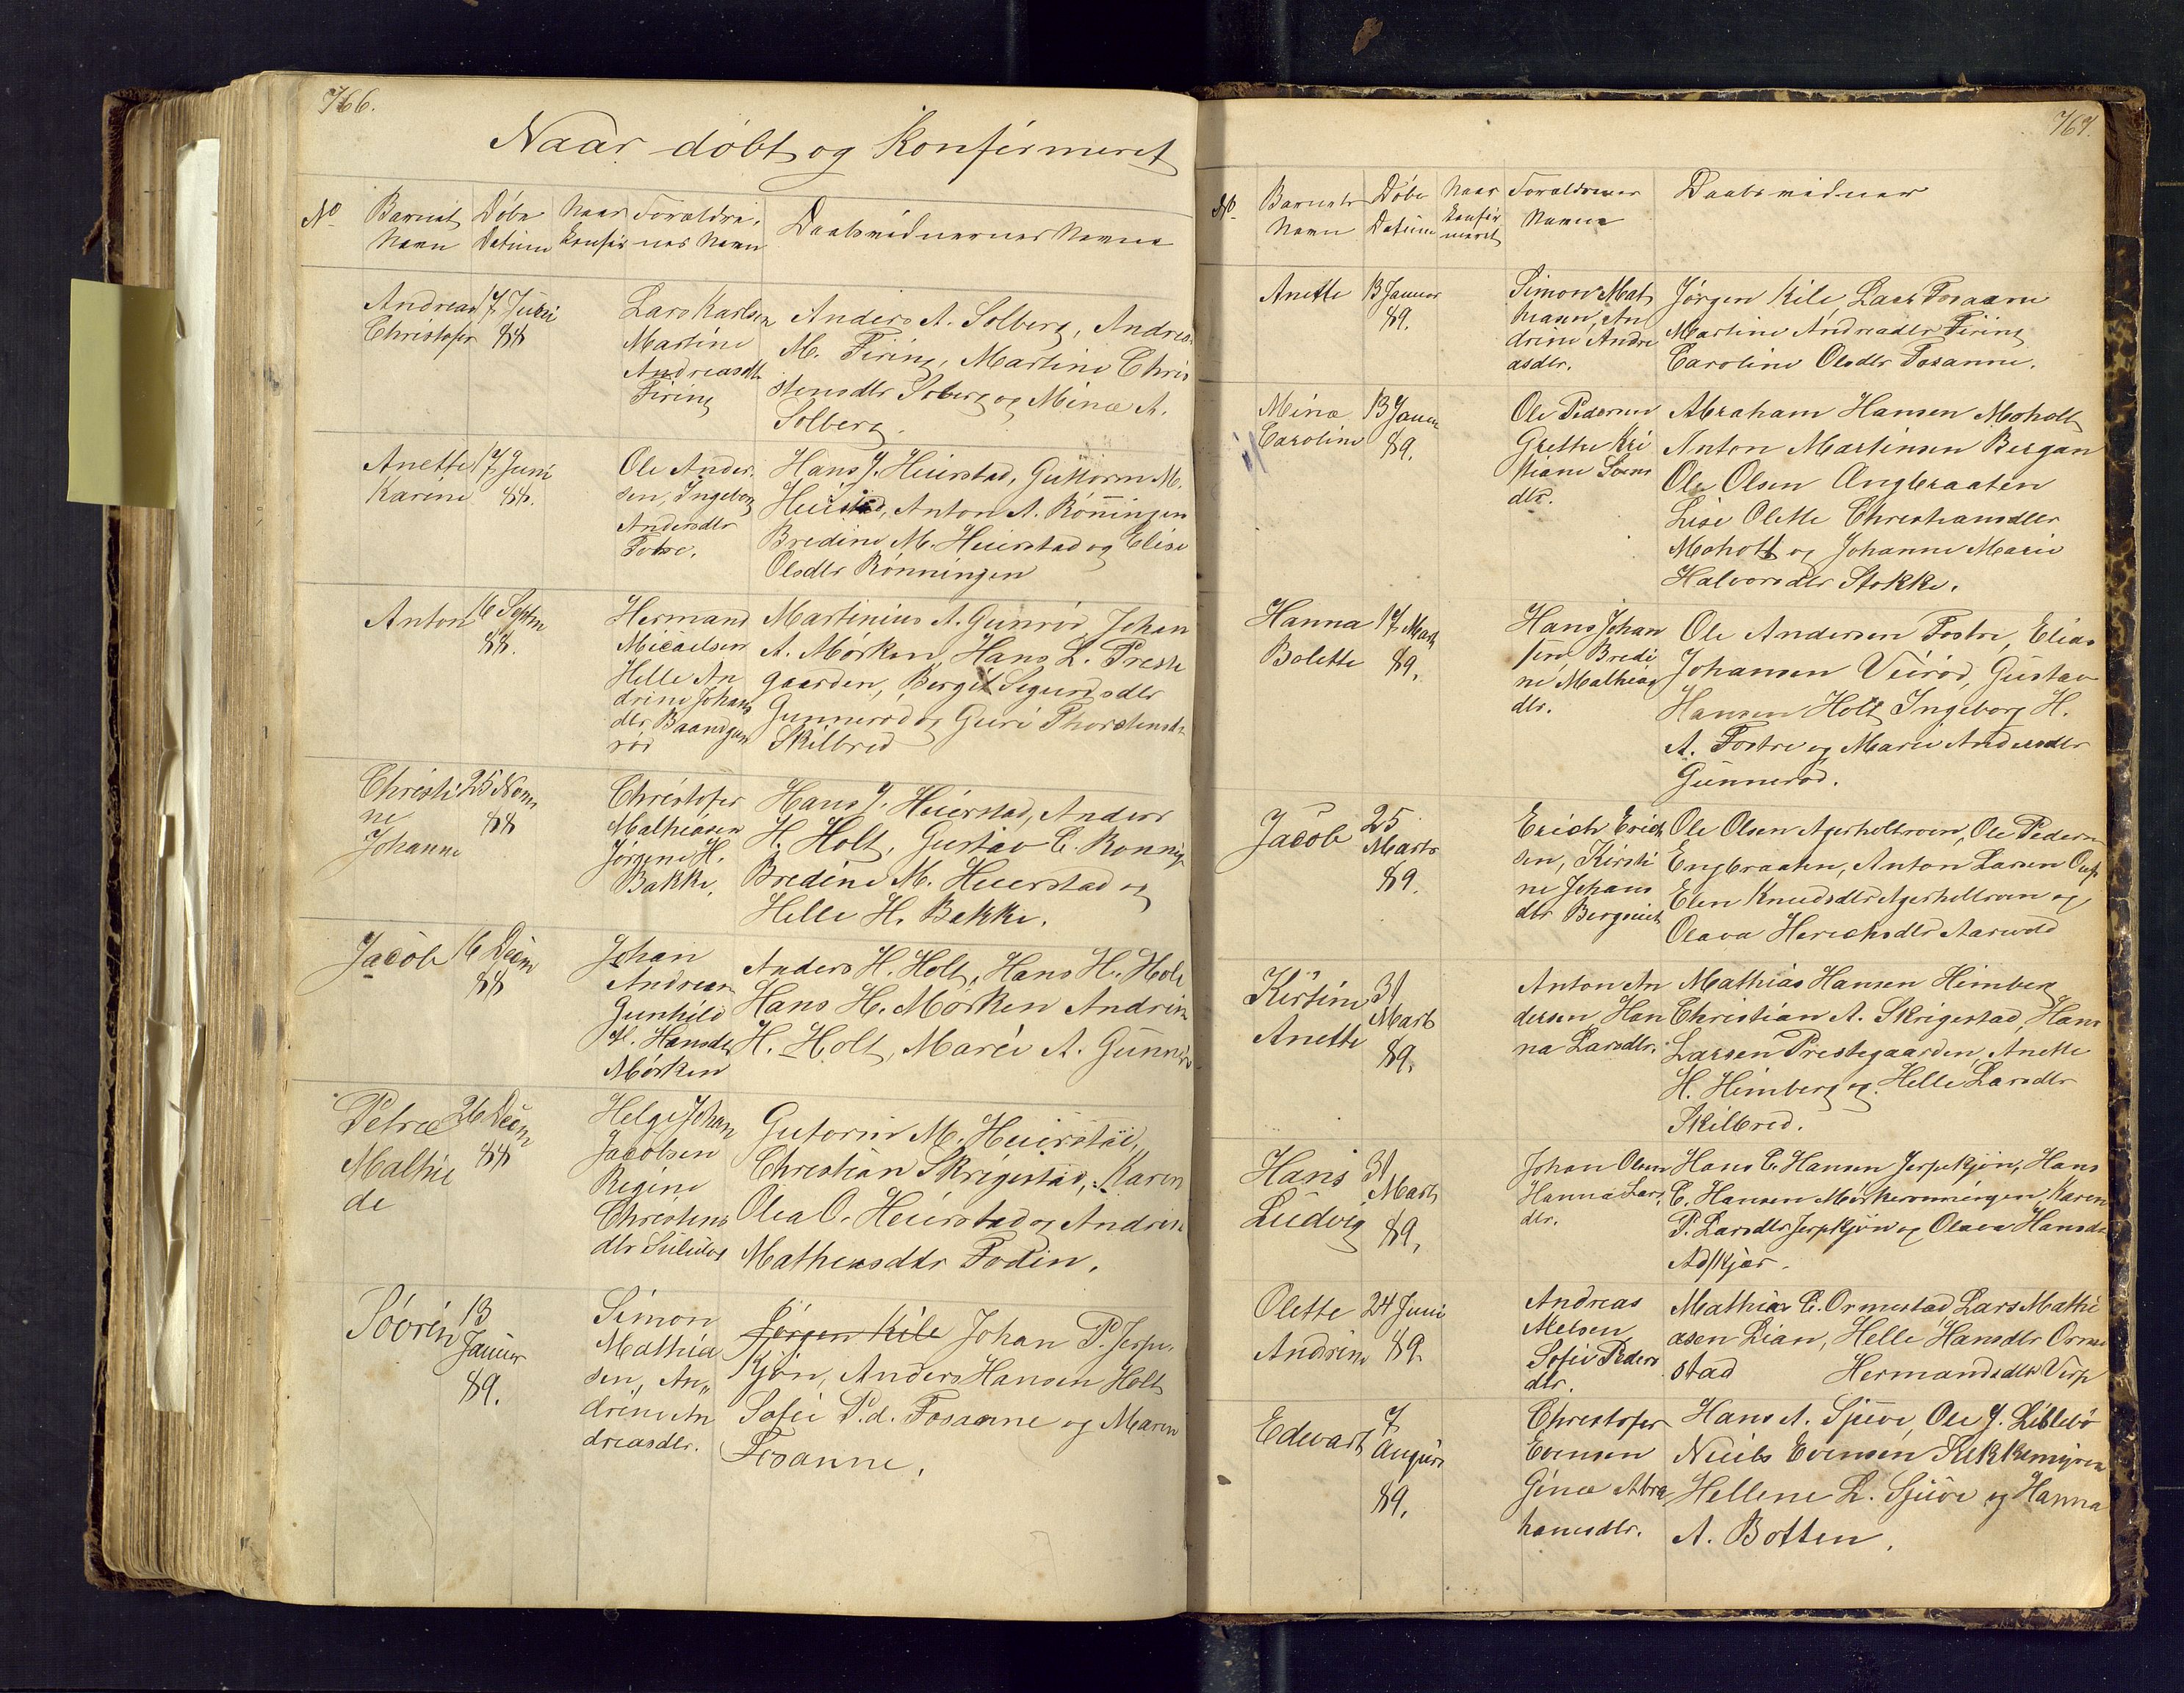 766.
Naar döbt og Konfirmeret
No
Barnets Navn
Döbe Datum
Naar Konfir
Forældre,
nes Navn
Daabsvidnernes Navne
Andreas Christofer
17 Juni 88
Lars Karlsen
Martine
Andreasdtr
Firing
Anders A. Solberg, Andreas
M. Firing, Martine Chris
stensdtr Solberg og Mina A.
Solberg.
Anette Karine
17 Juni 88.
Ole Ander
sen, Ingeborg
Andersdtr
Fostre.
Hans J. Heierstad, Guttorm M.
Heierstad, Anton A. Rönningen
Bredine M. Heierstad og Elise
Olsdtr Rönningen
Anton
16 Septm 88.
Hermand
Micaelsen
Helle An
drine Johans
dtr Baandgun
röd
Martinius A. Gunröd Johan
A. Mörken, Hans L. Preste
gaarden, Bergit Segurdsdtr
Gunneröd og Guri Thorstensdtr
Skilbred
Christi
ne
Johanne
25 Novm 88
Christofer
Mathiasen
Jörgine H.
Bakke.
Hans J. Heierstad, Anders
H. Holt, Gustav C. Ronning
Bredine M. Heierstad og
Helle H. Bakke.
Jacob
16 Decm 88
Johan
Andreas
Gunhild
M. Hansdtr
Mörken
Anders H. Holt, Hans H. Holt
Hans H. Mörken Andrine
H. Holt, Marie A. Gunneröd
Petrea
Mathil
de
26 Decm 88
Helge Johan
Jacobsen
Regine
Christens
dtr
Gutorm M. Heierstad,
Christian Skrigestad, Karen
Olea O. Heierstad og Andrine
Matheasdtr Fodin.
Sövrin
13 Januer 89.
Simon
Mathia
sen, An
drine An
dreasdtr.
Jörgen Kile Johan P. Jerpe
kjön, Anders Hansen Holt
Sofie P.d. Fosanne og Maren
Fosanne.
767.
No.
Barnets Navn
Döbe Datum
Naar Konfir meret
Forældrenes Navne
Daabsvidner
Anette
13 Januar 89.
Simon Mat
hiasen, An
drine Andre
asdtr.
Jörgen Kile Lars Fosaane
Martine Andreadtr Firing
Caroline Olsdtr Fosanne.
Mina Caroline
13 Januar 89.
Ole Pedersen
Grethe Kri
stiane Svens
dtr.
Abraham Hansen Moholt
Anton Martinsen Bergan
Ole Olsen Angbraaten
Lise Olette Christiansdtr
Moholt og Johanne Marie
Halvorsdtr Stokke.
Hanna Bolette
17 Marts 89.
Hans Johan
sen Bredi
ne Mathias
dtr.
Ole Andersen Fostre, Elias
Johansen Veiröd, Gustav
Hansen Holt Ingeborg H.
A. Fostre og Marie Andersdtr
Gunneröd.
Jacob
25 Marts 89.
Erich Erich
sen, Kirsti
ne Johans
dtr
Ole Olsen Agerholtroen, Ole Pedersen
Engbraaten, Anton Larsen
Elen Knudsdtr Agerholtroen og
Olava Herichsdtr Aarvold
Kirstine Anette
31 Marts 89.
Anton An
dersen Han
na Larsdtr.
Mathias Hansen Himberg
Christian A. Skrigestad, Hans
Larsen Prestegaarden Anette
H. Himberg og Helle Larsdtr
Skilbred.
Hans Ludvig
31 Marts 89.
Johan Olsen
Hanna Lars
dtr.
Hans C. Hansen Jerpekjön, Hans
C. Hansen Mörkeronningen Karen
P. Larsdtr Jerpekjön og Olava Hansdtr
Adskjær.
Olette Andrine
24 Juni 89.
Andreas
Nielsen
Sofie Peders
dtr.
Mathias C. Ormestad Lars Mathi
asen Lian, Helle Hansdtr Orme
stad Hermandsdtr
Edevart
7 August 89.
Christofer
Evensen
Gina Abra
hamsdtr.
Hans A. Sjuve, Ole J. Liblebö
Niels Evensen
Hellene L. Sjuve og Hanna
A. Botten.